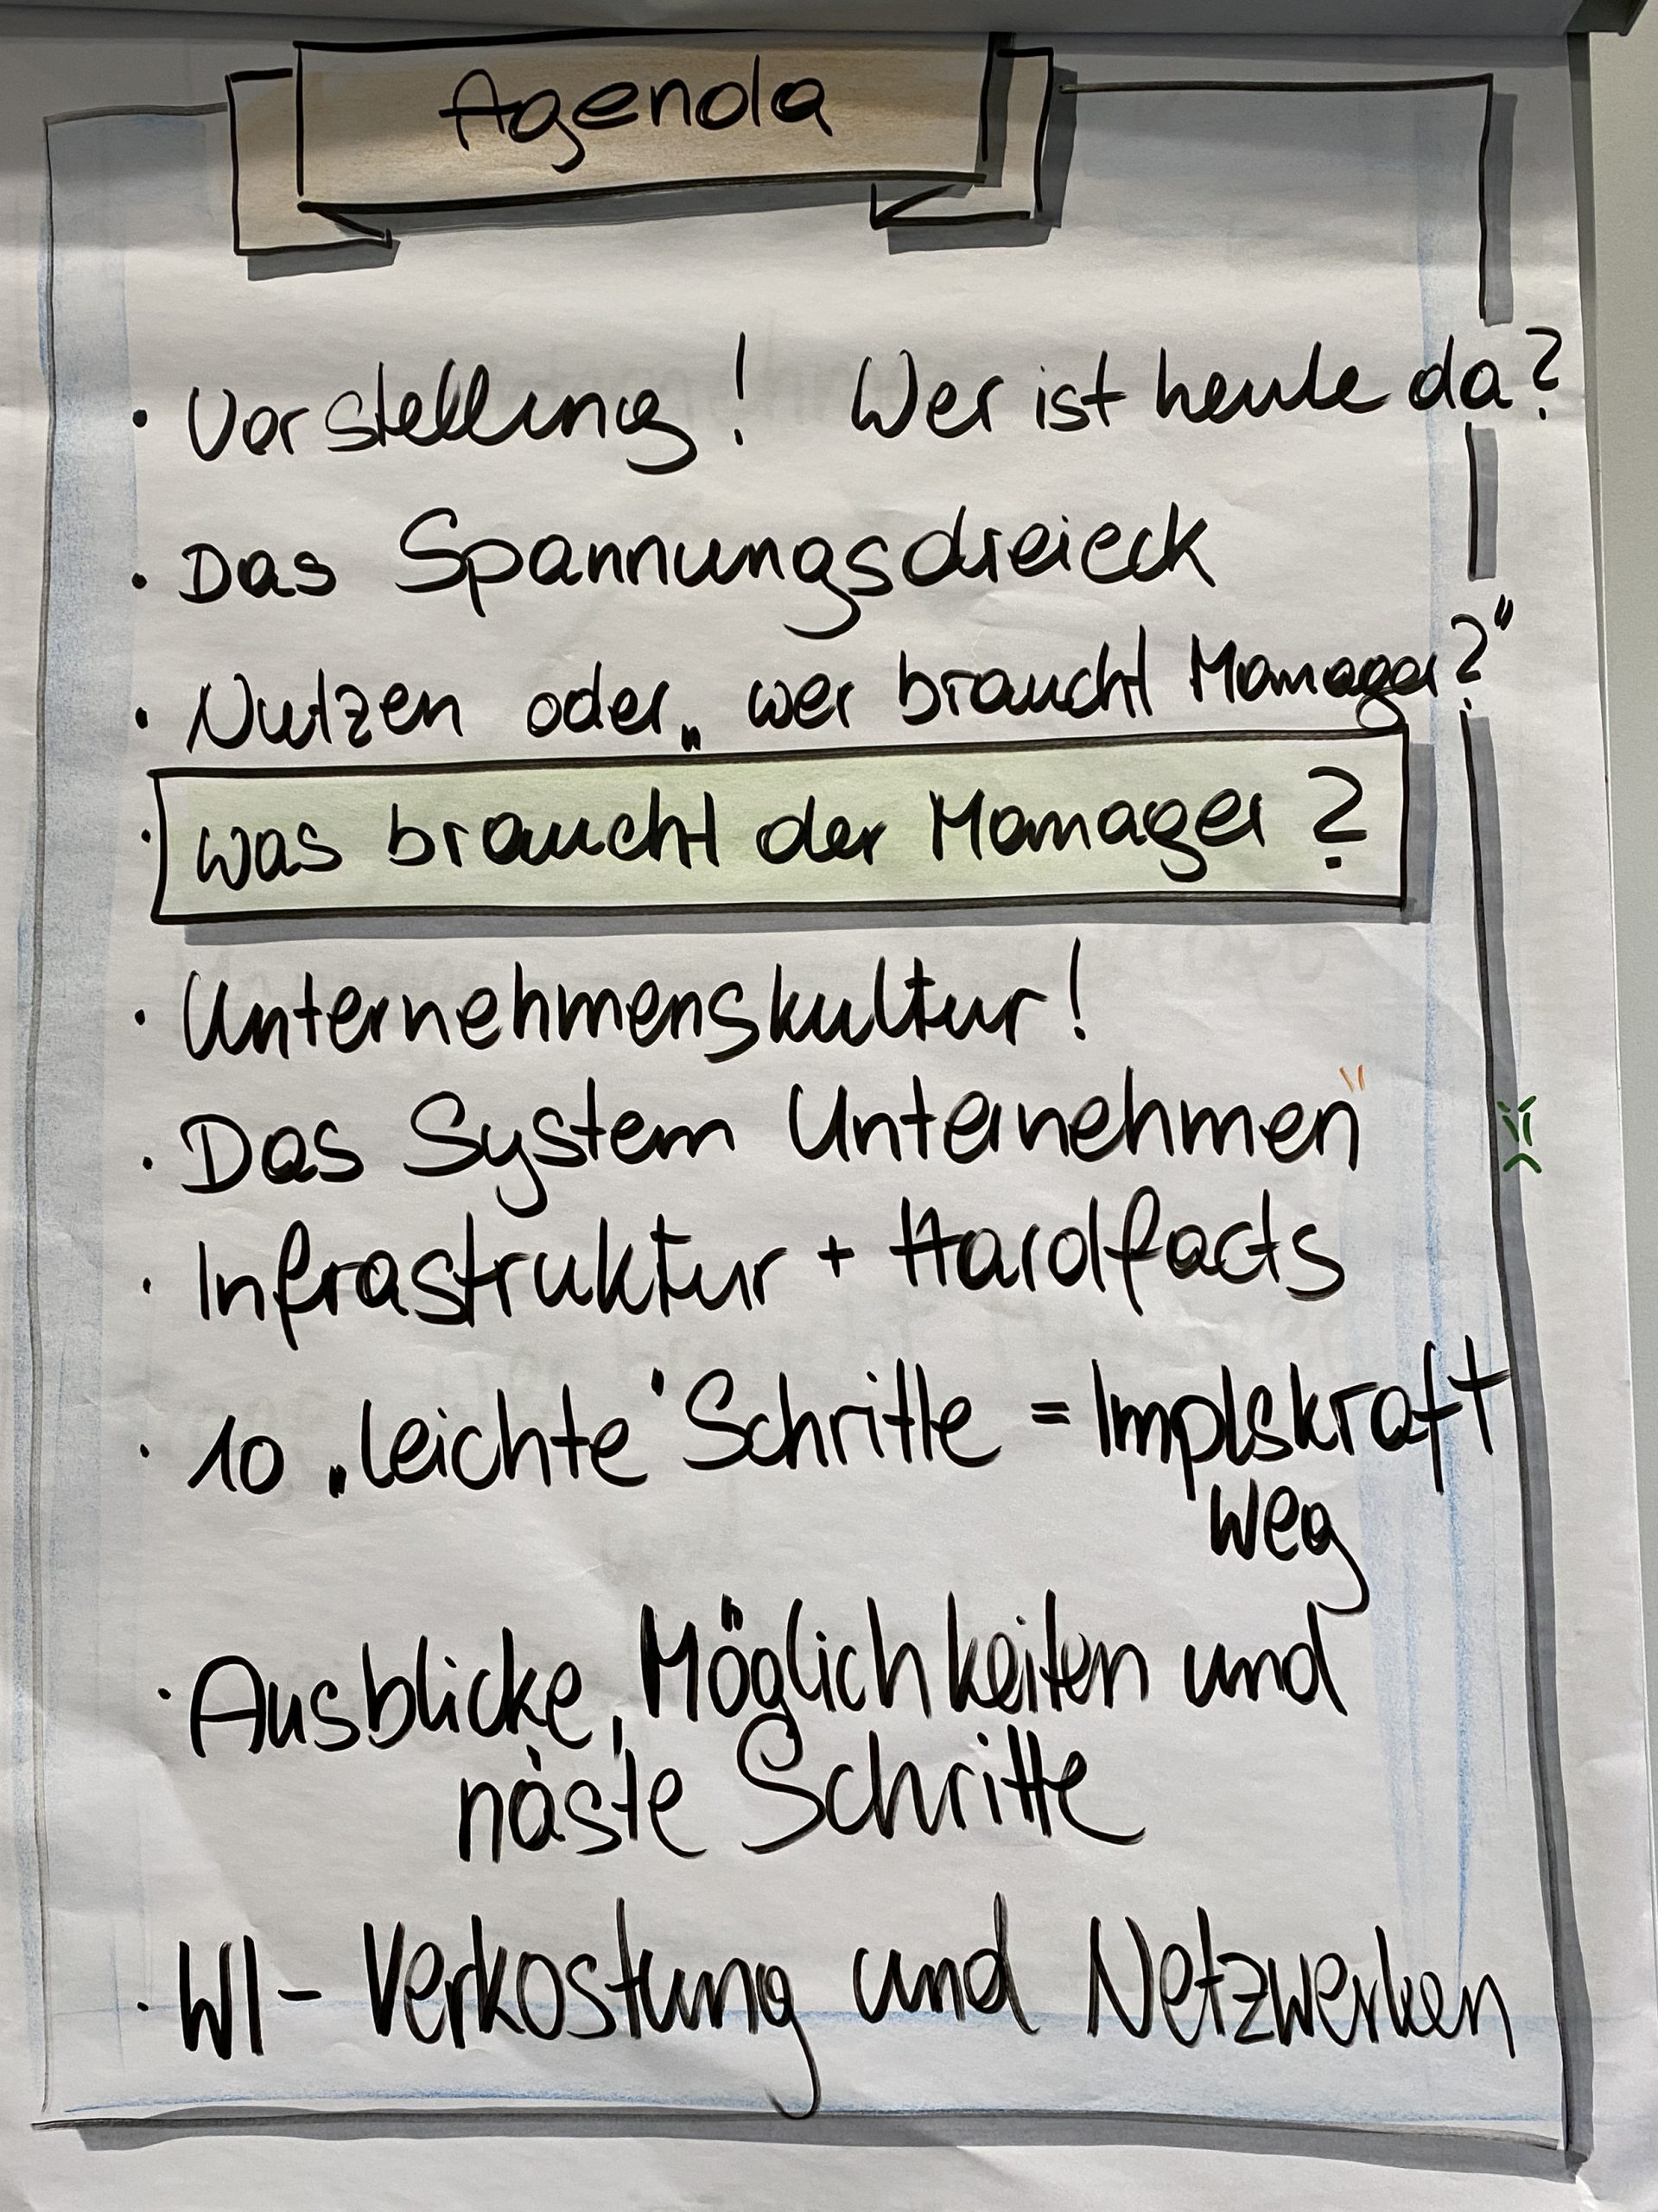 Agenda
• Vorstellung! Wer ist heute da?
• Das Spannungsdreieck
• Nutzen oder „wer braucht Manager?"
• Was braucht der Manager?
• Unternehmenskultur!
• Das System Unternehmen"
• Infrastruktur + Hardfacts
• 10 „leichte" Schritte = Implskraft
weg
• Ausblicke, Möglichkeiten und
näste Schritte
• WI- Verkostung und Netzwerken